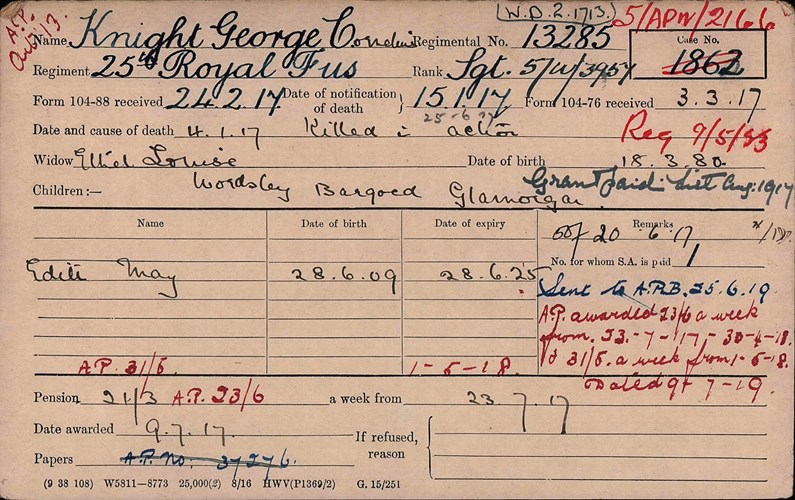 W.D.2.1713. 5/APW/2166
A.P.
Name Knight George Regimental No. 13285 Case No.
1862
Regiment 25th Royal Fus Rank Sgt. 5/W/3957
Form 104-88 received 24.2.17 Date of notification of death } 15.1.17 Form 104-76 received 3.3.17
Date and cause of death 4.1.17 Killed in action Reg 9/5/33
Widow Ethel Louise Date of birth 18.3.80
Children:— Wordsley Bargoed Glamorgan Grant paid List Aug: 1917
Name Date of birth Date of expiry Remarks
20.6.17
No. for whom S.A. is paid 1
Edith May 28.6.09 28.6.25
Sent to A.P.B. 25.6.19
A.P. awarded 23/6 a week
from 23-7-17 - 30-4-18
& 31/5. a week from 1-5-18.
A.P. 31/5. 1-5-18. Dated 7-19.
Pension 21/3 A.P. 23/6 a week from 23.7.17
Date awarded 9.7.17. If refused, reason
Papers A.P. No: 37276.
(9 38 108) W5811—8773 25,000(2) 8/16 HWV(P1369/2) G. 15/251